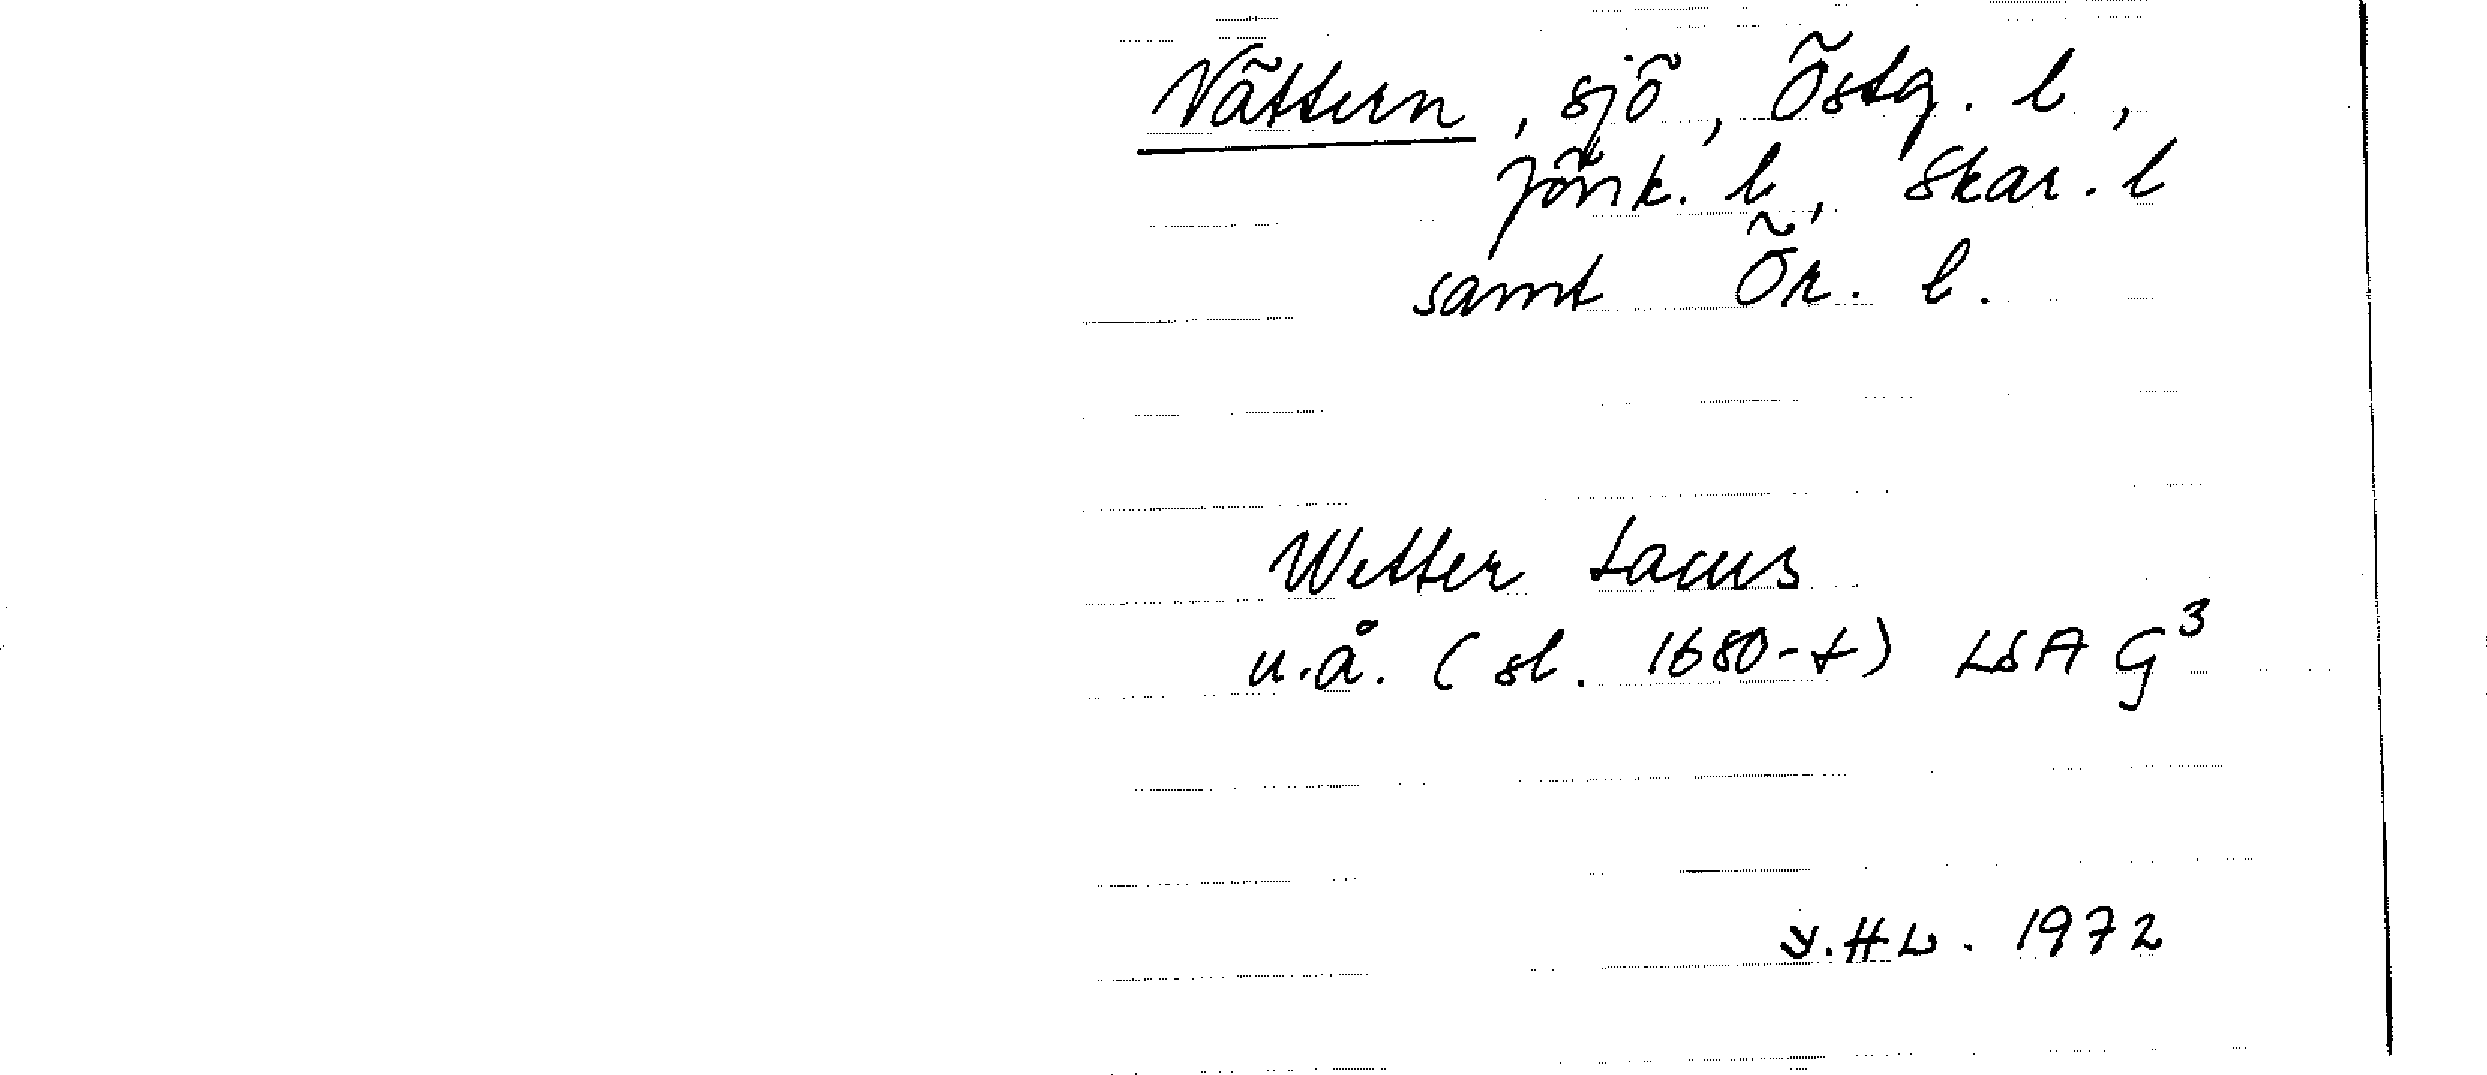 Vättern, sjö, Östg. l,
Jönk. l, Skar. l
samt Ör. l.
Wetter Lacus
u.å. (sl. 1680-t) LSA G³
HL. 1972